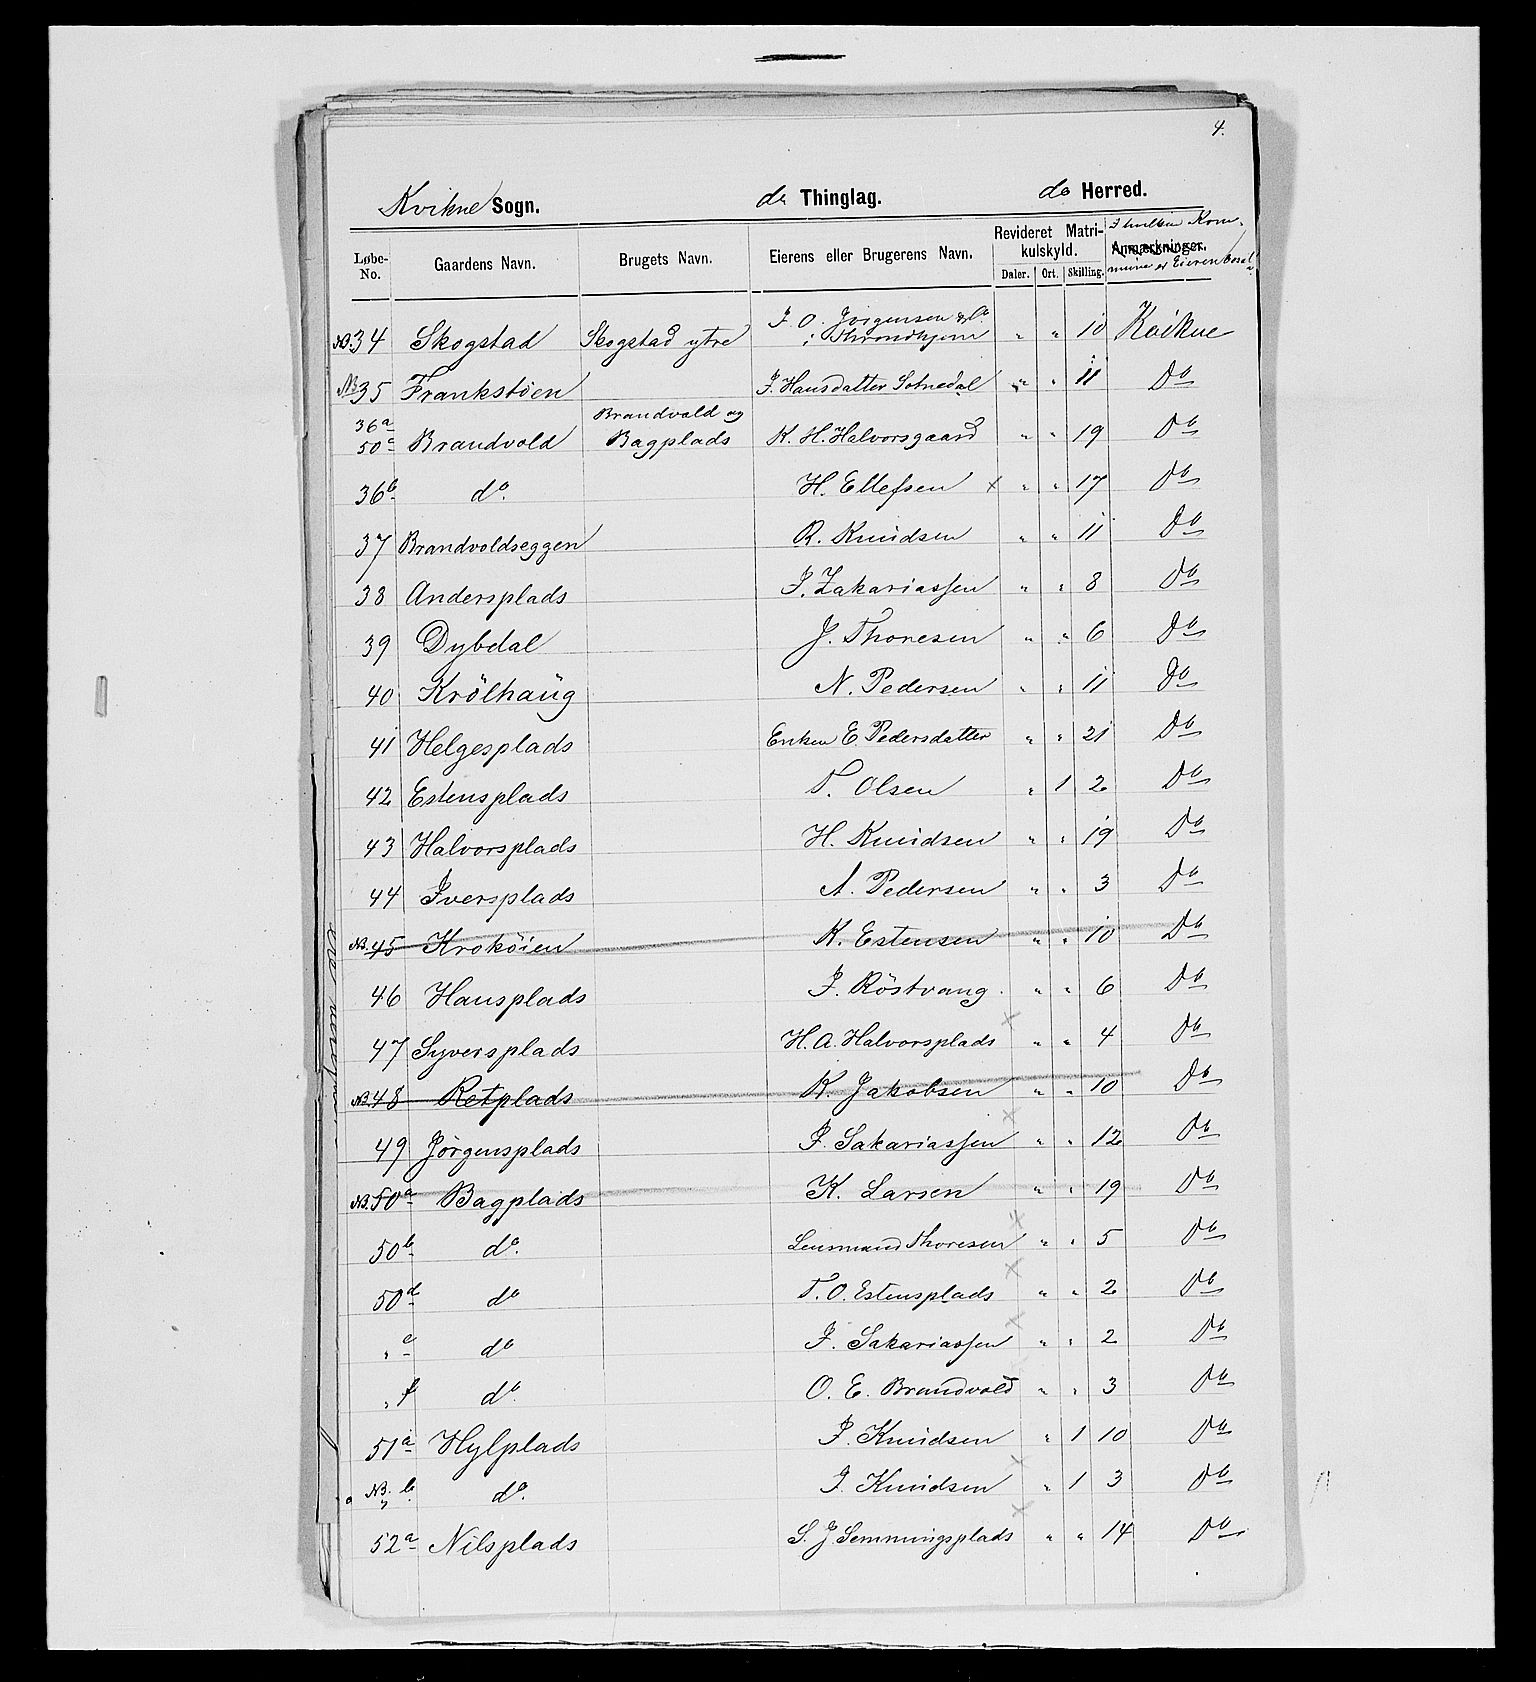 4.
Kvikne Sogn. do Thinglag. do Herred.
Løbe-No. Gaardens Navn. Brugets Navn. Eierens eller Brugerens Navn. Revideret Matrikulskyld. Daler. Ort. Skilling. Anmærkninger. I hvilken Kommune er Eieren bosat
NB. 34 Skogstad Skogstad ytre J. O. Jörgensen & Co. i Throndhjem " " 10 Kvikne
NB 35 Frankstöen J. Hansdatter Sotnedal " " 11 Do
36a 50c Brandvold Brandvold og Bagplads K. H. Halvorsgaard " " 19 Do
36b do. H. Ellefsen x " " 17 Do
37 Brandvoldseggen R. Knudsen " " 11 Do
38 Andersplads J. Zakariassen " " 8 Do
39 Dybdal J. Thoresen " " 6 Do
40 Krölhaug N. Pedersen " " 11 Do
41 Helgesplads Enken E. Pedersdatter " " 21 Do
42 Estensplads T. Olsen " 1 2 Do
43 Halvorsplads H. Knudsen " " 19 Do
44 Iversplads A. Pedersen " " 3 Do
NB. 45 Kroköien K. Estensen " " 10 Do
46 Hansplads J. Röstvang. " " 6 Do
47 Syversplads H. A. Halvorsplads x " " 4 Do
NB. 48 Retplads K. Jakobsen " " 10 Do
49 Jörgensplads J. Sakariassen x " " 12 Do
NB. 50a Bagplads K. Larsen " " 19 Do
50b do. Lensmand Thoresen x " " 5 Do
50d do T. O. Estensplads x " " 2 Do
" e do J. Sakariassen x " " 2 Do
" f do. O. E. Brandvold " " 3 Do
51a Hylplads J. Knudsen " 1 10 Do
NB. " b. do. J. Knudsen x " 1 3 Do
52a Nilsplads S. J. Semmingsplads x " " 14 Do